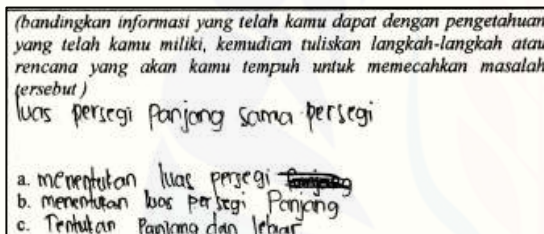 (bandingkan informasi yang telah kamu dapat dengan pengetahuan
yang telah kamu miliki, kemudian tuliskan langkah-langkah atau
rencana yang akan kamu tempuh untuk memecahkan masalah
tersebut)
luas persegi Panjang sama persegi
a. menentukan luas persegi
b. menentukan luas persegi Panjang
c. Tentukan Panjang dan lebar